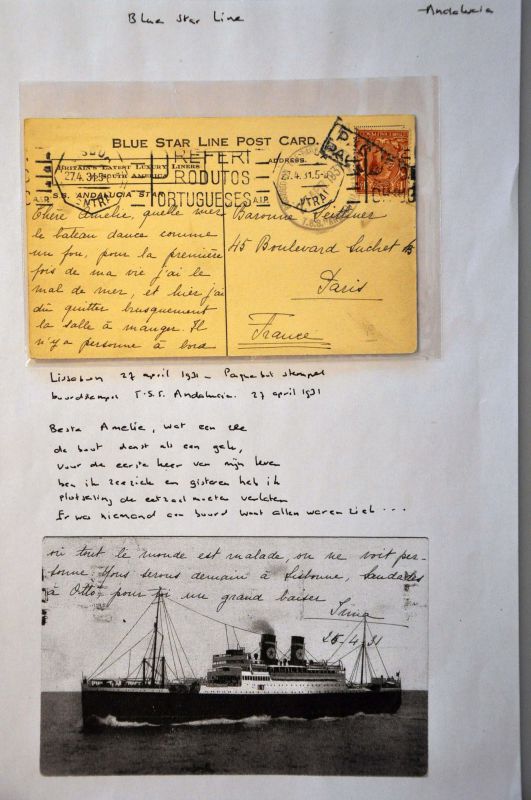 Blue Star Line
Andalucia
BLUE STAR LINE POST CARD.
BRITAIN'S LATEST LUXURY LINERS
SOUTH AMERICA
S.S. ANDALUCIA STAR
ADDRESS.
27.4.31.5
PREFERI
PRODUTOS
PORTUGUESES
27.4.31.5
Chère Amélie, quelle mer
le bateau dance comme
un fou, pour la première
fois de ma vie j'ai le
mal de mer, et hier j'ai
dû quitter brusquement
la salle à manger. Il
n'y a personne à bord
Baronne
45 Boulevard Suchet
Paris
France
Lissabon 27 april 1931 - Paquebot stempel
boordstempel T.S.S. Andalucia. 27 april 1931
Beste Amelie, wat een zee
de boot danst als een gek,
voor de eerste keer van mijn leven
ben ik zeeziek en gisteren heb ik
plotseling de eetzaal moeten verlaten
Er was niemand aan boord want allen waren ziek...
où tout le monde est malade, on ne voit per-
sonne. Nous serons demain à Lisbonne, Saudades
à Otto, pour toi un grand baiser
Irma
26/4/31